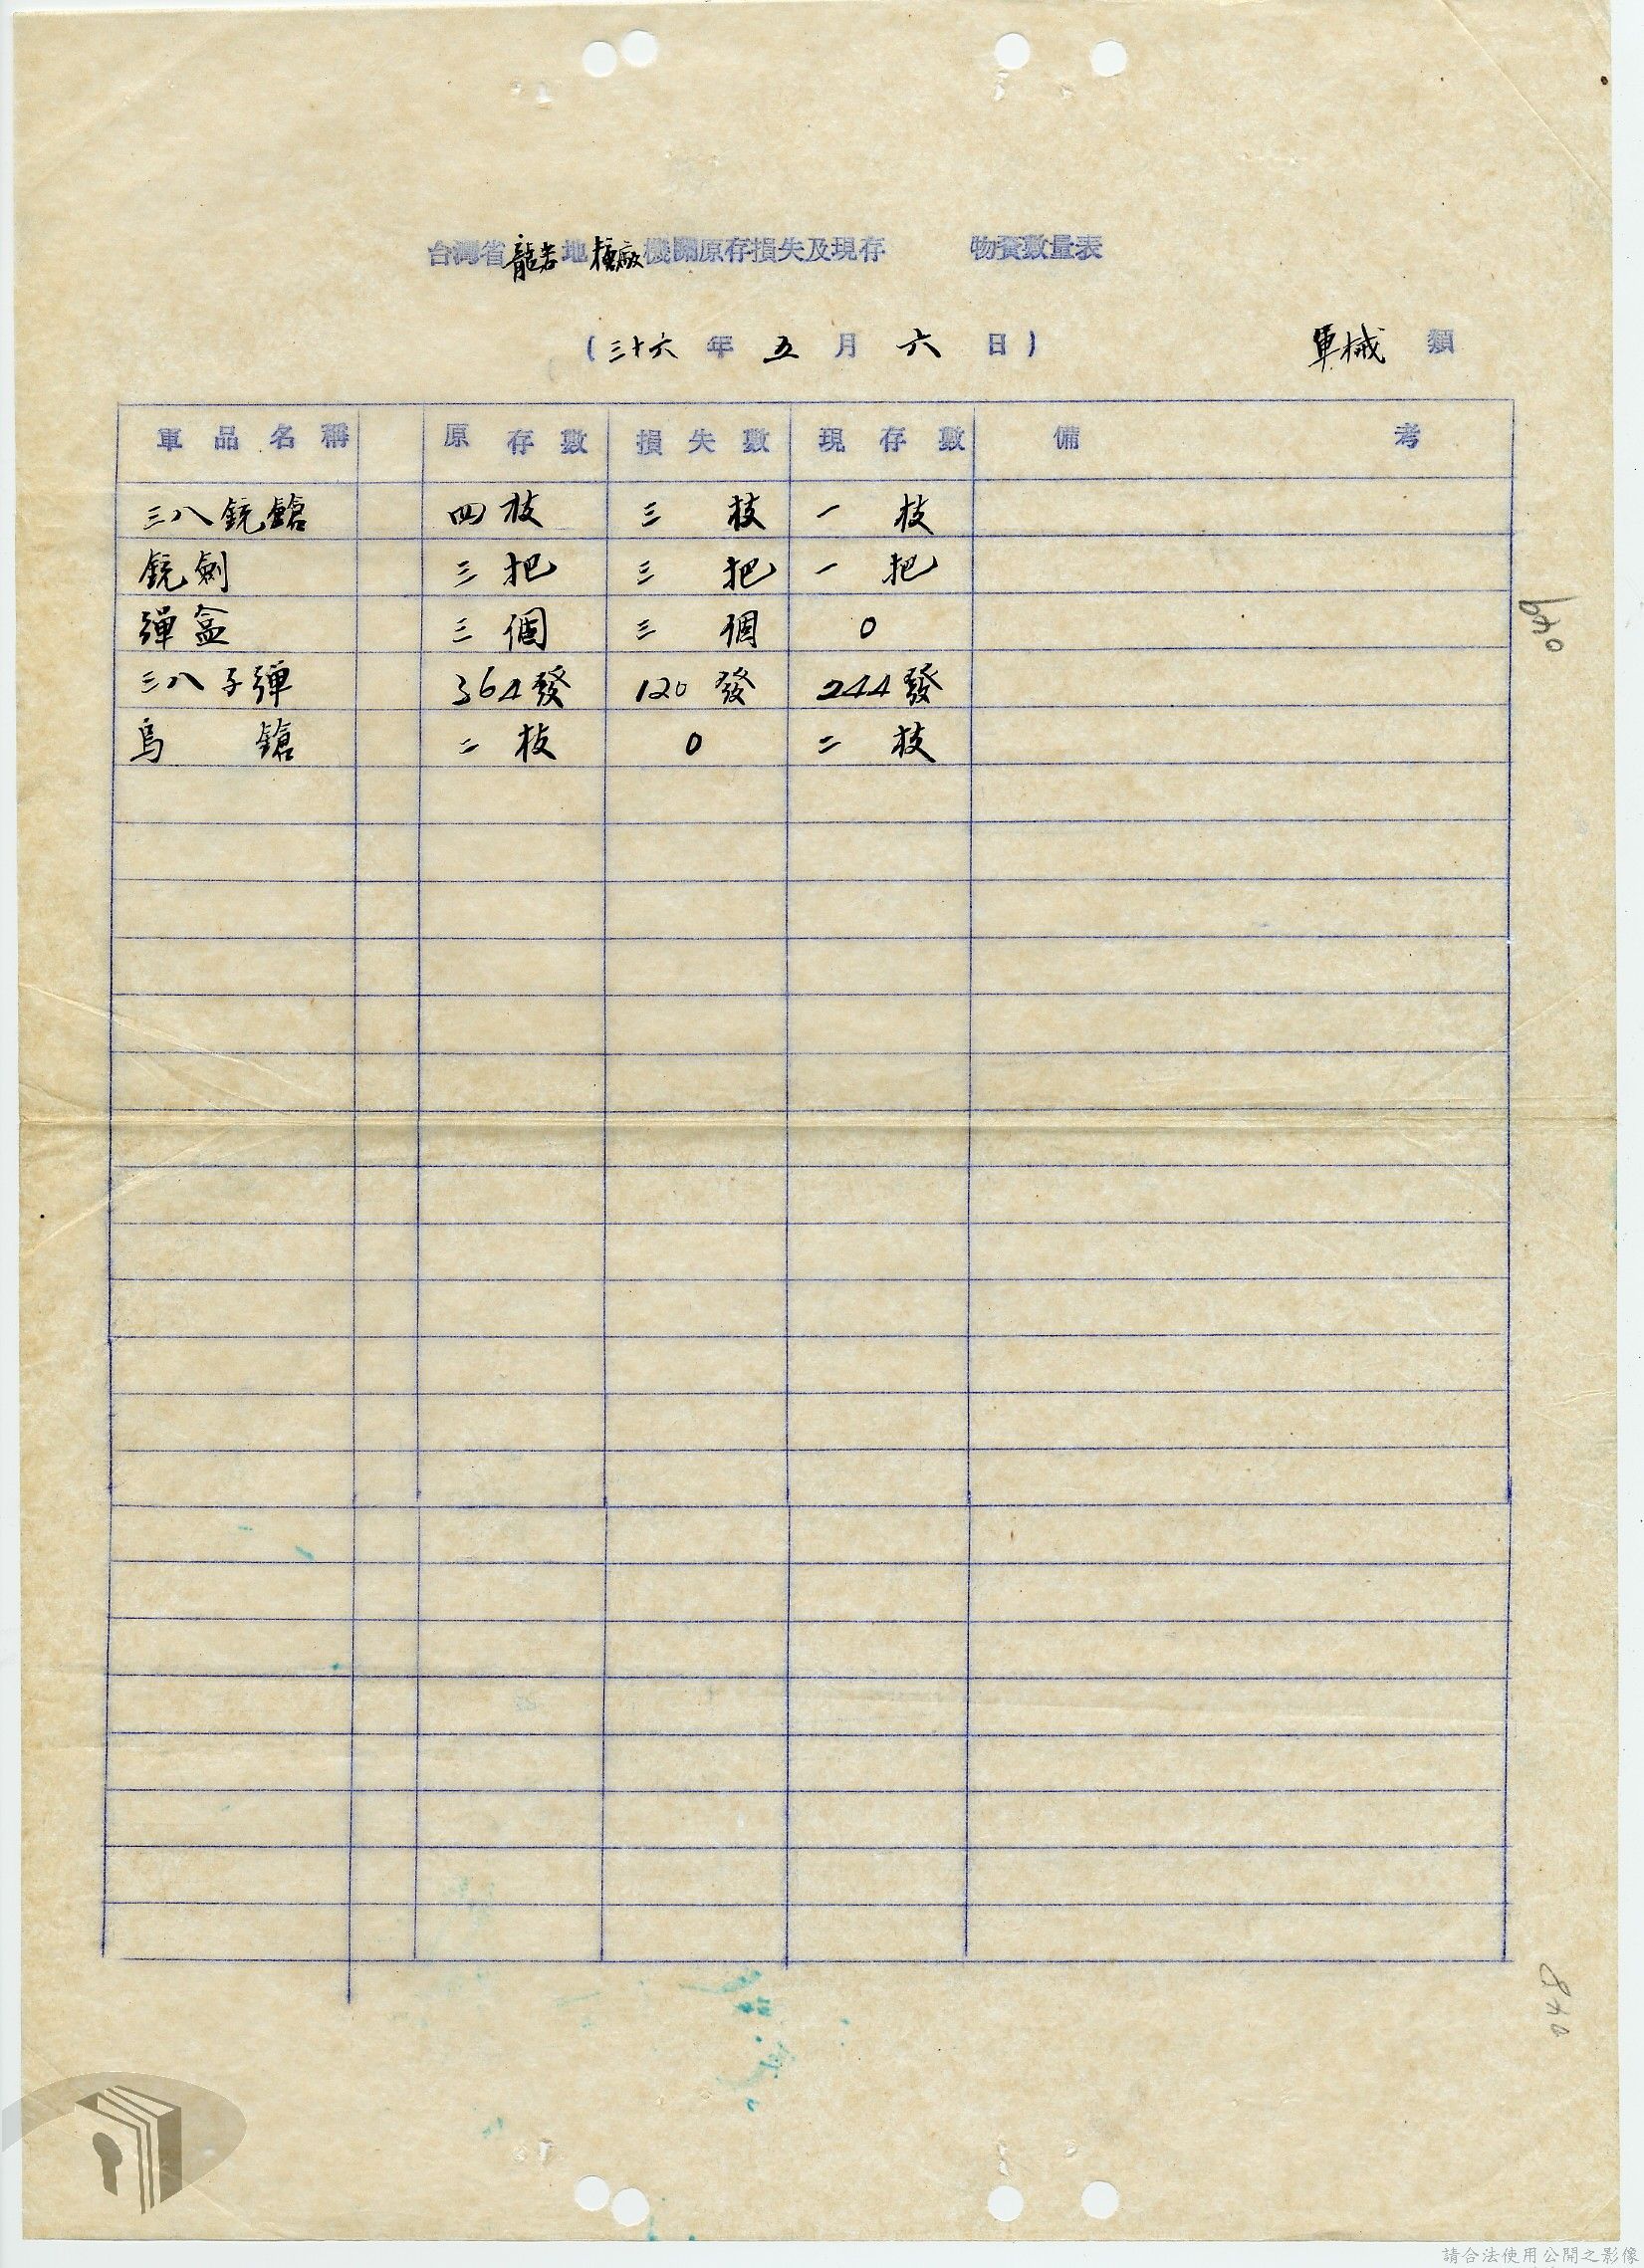 台灣省龍岩地糖廠機關原存損失及現存 物資數量表
(三十六年五月六日) 軍械類
軍品名稱 原存數 損失數 現存數 備考
三八銃鎗 四枝 三枝 一枝
銃劍 三把 三把 一把
彈盒 三個 三個 0
三八子彈 364發 120發 244發
鳥鎗 二枝 0 二枝
049
048
請合法使用公開之影像